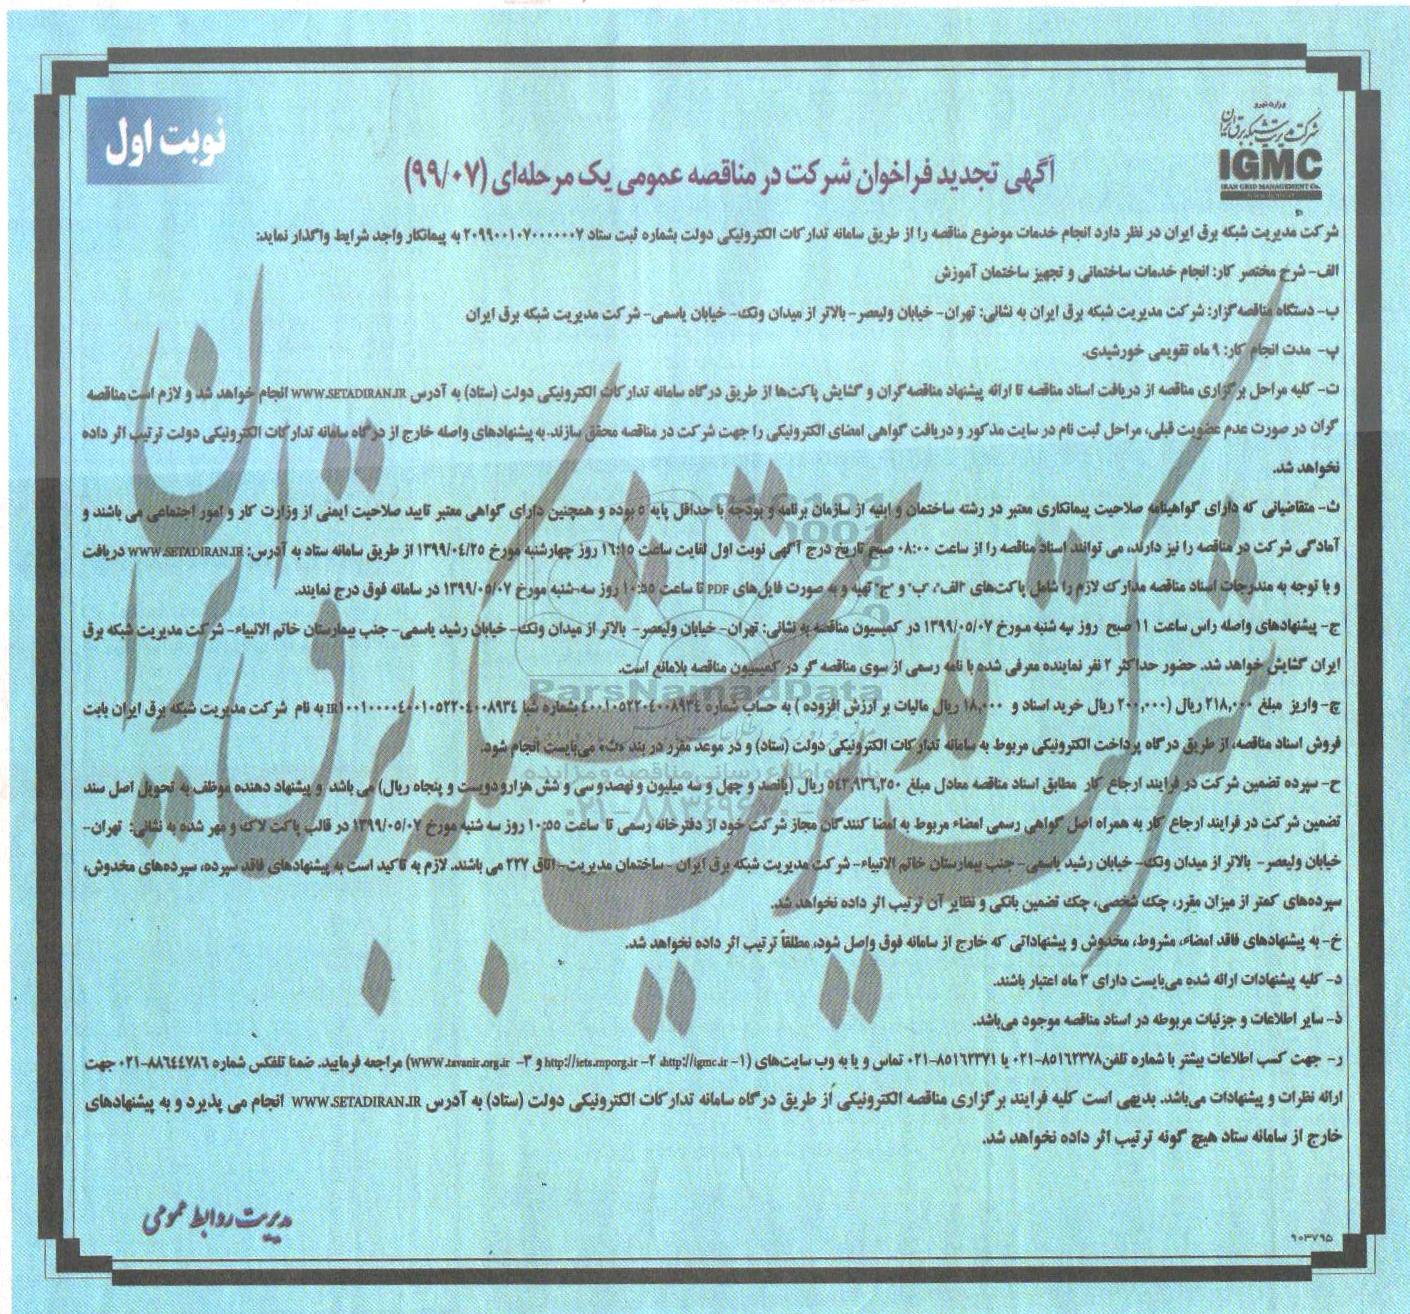 وزارت نیرو
شرکت مدیریت شبکه برق ایران
IGMC
IRAN GRID MANAGEMENT Co.
نوبت اول
آگهی تجدید فراخوان شرکت در مناقصه عمومی یک مرحله‌ای (۹۹/۰۷)
شرکت مدیریت شبکه برق ایران در نظر دارد انجام خدمات موضوع مناقصه را از طریق سامانه تدارکات الکترونیکی دولت بشماره ثبت ستاد ۲۰۹۹۰۰۱۰۷۰۰۰۰۰۰۷ به پیمانکار واجد شرایط واگذار نماید:
الف- شرح مختصر کار: انجام خدمات ساختمانی و تجهیز ساختمان آموزش
ب- دستگاه مناقصه‌گزار: شرکت مدیریت شبکه برق ایران به نشانی: تهران- خیابان ولیعصر- بالاتر از میدان ونک- خیابان یاسمی- شرکت مدیریت شبکه برق ایران
پ- مدت انجام کار: ۹ ماه تقویمی خورشیدی.
ت- کلیه مراحل برگزاری مناقصه از دریافت اسناد مناقصه تا ارائه پیشنهاد مناقصه‌گران و گشایش پاکت‌ها از طریق درگاه سامانه تدارکات الکترونیکی دولت (ستاد) به آدرس WWW.SETADIRAN.IR انجام خواهد شد و لازم است مناقصه
گران در صورت عدم عضویت قبلی، مراحل ثبت نام در سایت مذکور و دریافت گواهی امضای الکترونیکی را جهت شرکت در مناقصه محقق سازند. به پیشنهادهای واصله خارج از درگاه سامانه تدارکات الکترونیکی دولت ترتیب اثر داده
نخواهد شد.
ث- متقاضیانی که دارای گواهینامه صلاحیت پیمانکاری معتبر در رشته ساختمان و ابنیه از سازمان برنامه و بودجه با حداقل پایه ۵ بوده و همچنین دارای گواهی معتبر تایید صلاحیت ایمنی از وزارت کار و امور اجتماعی می باشند و
آمادگی شرکت در مناقصه را نیز دارند، می توانند اسناد مناقصه را از ساعت ۰۸:۰۰ صبح تاریخ درج آگهی نوبت اول لغایت ساعت ۱۶:۱۵ روز چهارشنبه مورخ ۱۳۹۹/۰۴/۲۵ از طریق سامانه ستاد به آدرس: WWW.SETADIRAN.IR دریافت
و با توجه به مندرجات اسناد مناقصه مدارک لازم را شامل پاکت‌های "الف"، "ب" و "ج" تهیه و به صورت فایل‌های PDF تا ساعت ۱۰:۵۵ روز سه‌شنبه مورخ ۱۳۹۹/۰۵/۰۷ در سامانه فوق درج نمایند.
ج- پیشنهادهای واصله راس ساعت ۱۱ صبح روز سه شنبه مورخ ۱۳۹۹/۰۵/۰۷ در کمیسیون مناقصه به نشانی: تهران- خیابان ولیعصر- بالاتر از میدان ونک- خیابان رشید یاسمی- جنب بیمارستان خاتم الانبیاء- شرکت مدیریت شبکه برق
ایران گشایش خواهد شد. حضور حداکثر ۲ نفر نماینده معرفی شده با نامه رسمی از سوی مناقصه گر در کمیسیون مناقصه بلامانع است.
چ- واریز مبلغ ۲۱۸,۰۰۰ ریال (۲۰۰,۰۰۰ ریال خرید اسناد و ۱۸,۰۰۰ ریال مالیات بر ارزش افزوده) به حساب شماره ۴۰۰۱۰۵۲۲۰۴۰۰۸۹۳۴ بشماره شبا IR۱۰۰۱۰۰۰۰۴۰۰۱۰۵۲۲۰۴۰۰۸۹۳۴ به نام شرکت مدیریت شبکه برق ایران بابت
فروش اسناد مناقصه، از طریق درگاه پرداخت الکترونیکی مربوط به سامانه تدارکات الکترونیکی دولت (ستاد) و در موعد مقرر در بند «ث» می‌بایست انجام شود.
ح- سپرده تضمین شرکت در فرایند ارجاع کار مطابق اسناد مناقصه معادل مبلغ ۵۴۳,۹۳۶,۲۵۰ ریال (پانصد و چهل و سه میلیون و نهصدو سی و شش هزارو دویست و پنجاه ریال) می باشد و پیشنهاد دهنده موظف به تحویل اصل سند
تضمین شرکت در فرایند ارجاع کار به همراه اصل گواهی رسمی امضاء مربوط به امضا کنندگان مجاز شرکت خود از دفترخانه رسمی تا ساعت ۱۰:۵۵ روز سه شنبه مورخ ۱۳۹۹/۰۵/۰۷ در قالب پاکت لاک و مهر شده به نشانی: تهران-
خیابان ولیعصر- بالاتر از میدان ونک- خیابان رشید یاسمی- جنب بیمارستان خاتم الانبیاء- شرکت مدیریت شبکه برق ایران -ساختمان مدیریت- اتاق ۲۲۷ می باشند. لازم به تاکید است به پیشنهادهای فاقد سپرده، سپرده‌های مخدوش،
سپرده‌های کمتر از میزان مقرر، چک شخصی، چک تضمین بانکی و نظایر آن ترتیب اثر داده نخواهد شد.
خ- به پیشنهادهای فاقد امضاء، مشروط، مخدوش و پیشنهاداتی که خارج از سامانه فوق واصل شود، مطلقاً ترتیب اثر داده نخواهد شد.
د- کلیه پیشنهادات ارائه شده می‌بایست دارای ۳ ماه اعتبار باشند.
ذ- سایر اطلاعات و جزئیات مربوطه در اسناد مناقصه موجود می‌باشد.
ر- جهت کسب اطلاعات بیشتر با شماره تلفن ۸۵۱۶۲۳۷۸-۰۲۱ یا ۸۵۱۶۲۳۷۱-۰۲۱ تماس و یا به وب سایت‌های (۱- http://igmc.ir، ۲- http://iets.mporg.ir و ۳- WWW.tavanir.org.ir) مراجعه فرمایید. ضمنا تلفکس شماره ۸۸۶۴۴۷۸۶-۰۲۱ جهت
ارائه نظرات و پیشنهادات می‌باشد. بدیهی است کلیه فرایند برگزاری مناقصه الکترونیکی از طریق درگاه سامانه تدارکات الکترونیکی دولت (ستاد) به آدرس WWW.SETADIRAN.IR انجام می پذیرد و به پیشنهادهای
خارج از سامانه ستاد هیچ گونه ترتیب اثر داده نخواهد شد.
مدیریت روابط عمومی
۹۰۳۷۹۵
ParsNamadData
۰۲۱-۸۸۳۴۹۶۷۰